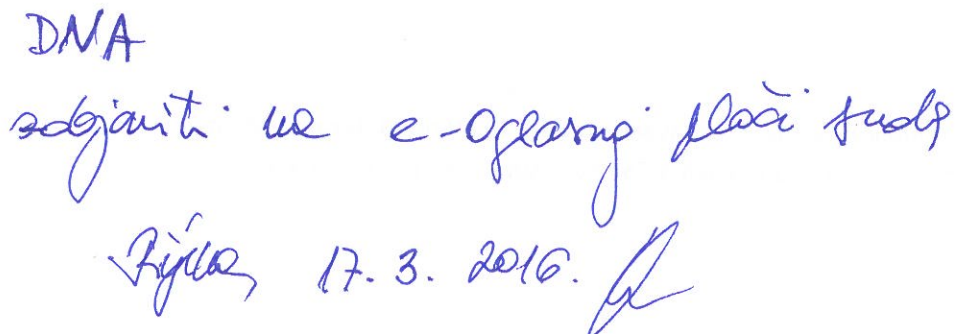 DNA
objaviti na e-Oglasnoj ploči suda
Rijeka, 17. 3. 2016.